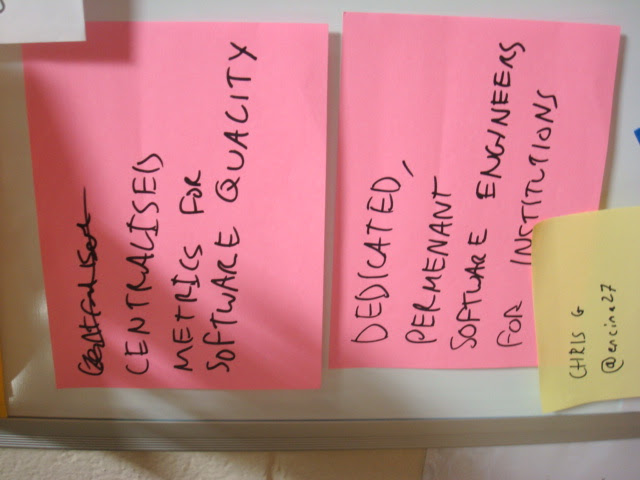 CENTRALISED
METRICS FOR
SOFTWARE QUALITY
DEDICATED,
PERMENANT
SOFTWARE ENGINEERS
FOR INSTITUTIONS
CHRIS G
@encine27